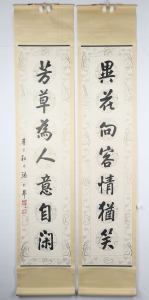 異花向客情猶笑
芳草為人意自闲